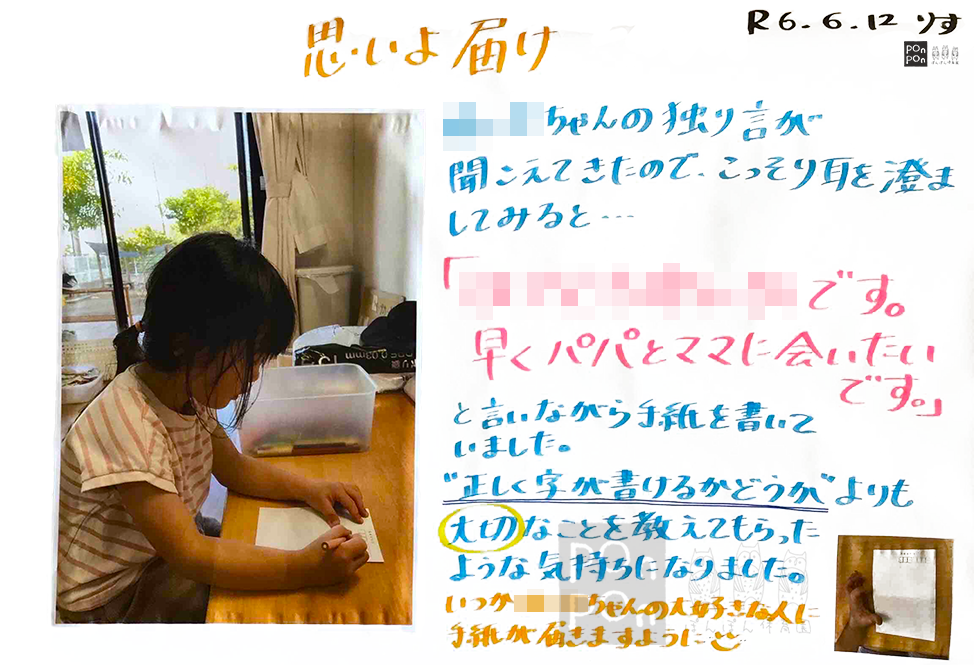 R6.6.12 りす
PONPON
ぽんぽん保育園
思いよ届け
ちゃんの独り言が
聞こえてきたので、こっそり耳を澄ま
してみると…
「 です。
早くパパとママに会いたい
です。」
と言いながら手紙を書いて
いました。
"正しく字が書けるかどうか"よりも
大切なことを教えてもらった
ような気持ちになりました。
いつか ちゃんの大好きな人に
手紙が届きますように
PONPON
ぽんぽん保育園
0.03mm